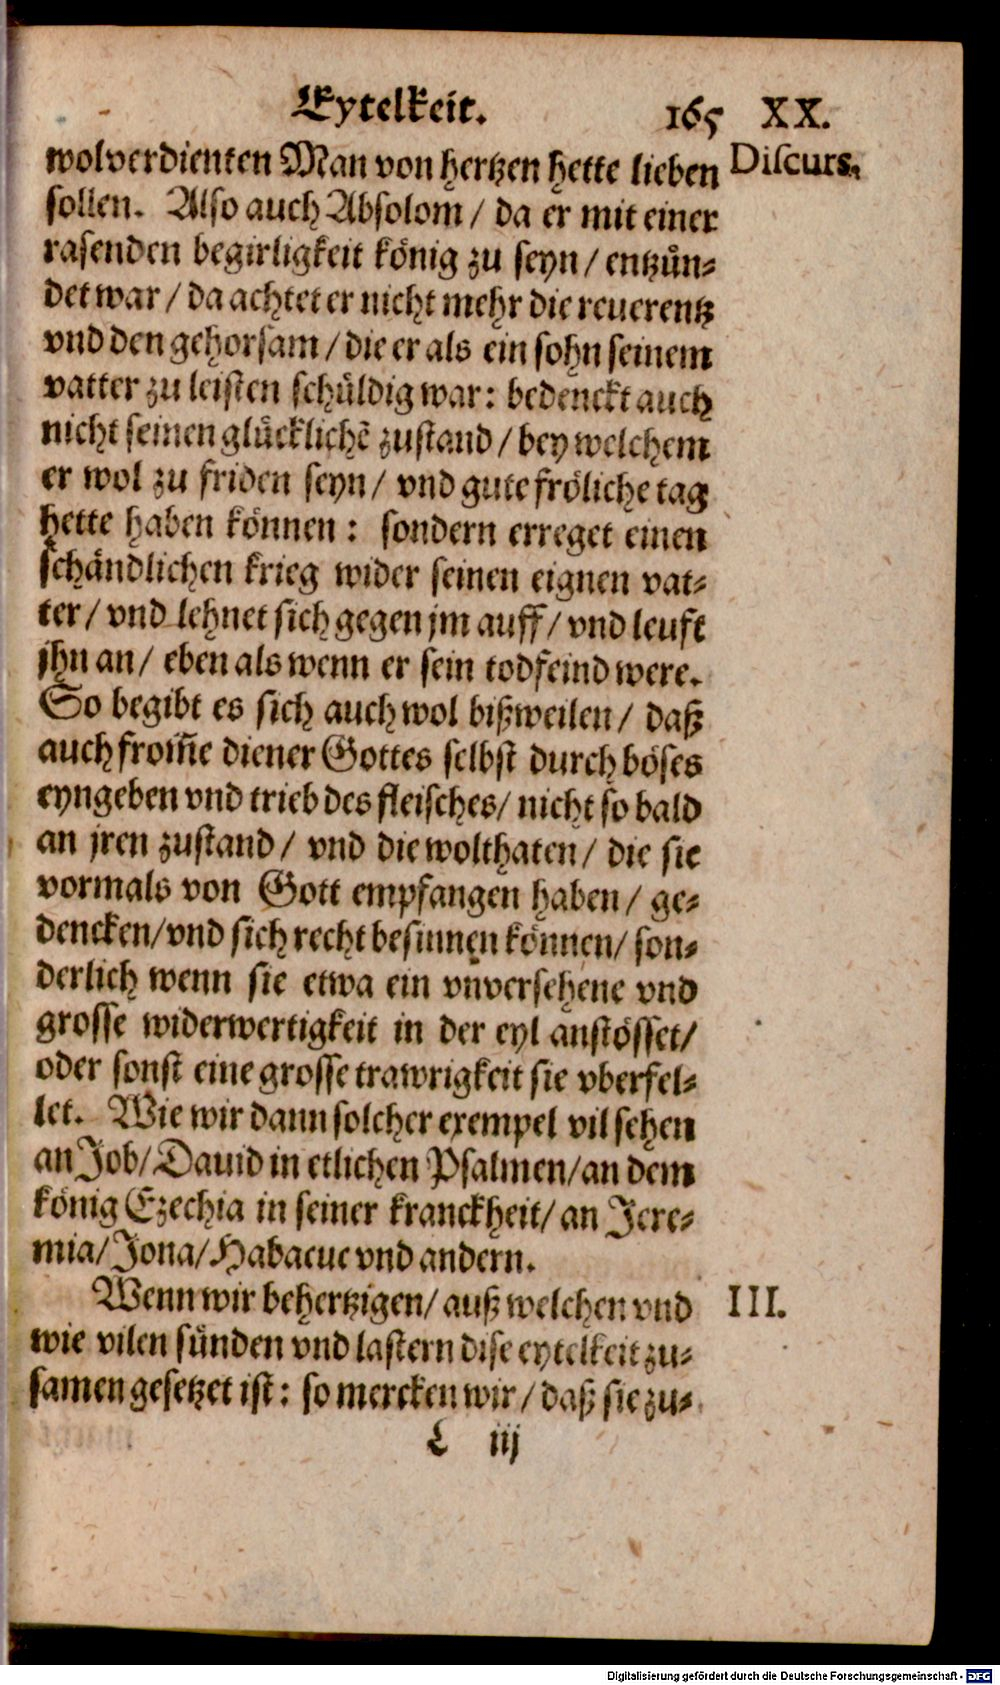 Eytelkeit. 165 XX.
wolverdienten Man von hertzen hette lieben Discurs.
sollen. Also auch Absolom / da er mit einer
rasenden begirligkeit könig zu seyn / entzün⸗
det war / da achtet er nicht mehr die reuerentz
vnd den gehorsam / die er als ein sohn seinem
vatter zu leisten schüldig war: bedenckt auch
nicht seinen glücklichē zustand / bey welchem
er wol zu friden seyn / vnd gute fröliche tag
hette haben können: sondern erreget einen
schändlichen krieg wider seinen eignen vat⸗
ter / vnd lehnet sich gegen jm auff / vnd leuft
jhn an / eben als wenn er sein todfeind were.
So begibt es sich auch wol bißweilen / daß
auch from̃e diener Gottes selbst durch böses
eyngeben vnd trieb des fleisches / nicht so bald
an jren zustand / vnd die wolthaten / die sie
vormals von Gott empfangen haben / ge⸗
dencken / vnd sich recht besinnen können / son⸗
derlich wenn sie etwa ein vnversehene vnd
grosse widerwertigkeit in der eyl anstösset /
oder sonst eine grosse trawrigkeit sie vberfel⸗
let. Wie wir dann solcher exempel vil sehen
an Job / Dauid in etlichen Psalmen / an dem
könig Ezechia in seiner kranckheit / an Jere⸗
mia / Jona / Habacuc vnd andern.
Wenn wir behertzigen / auß welchen vnd III.
wie vilen sünden vnd lastern dise eytelkeit zu⸗
samen gesetzet ist: so mercken wir / daß sie zu⸗
L iij
Digitalisierung gefördert durch die Deutsche Forschungsgemeinschaft - DFG